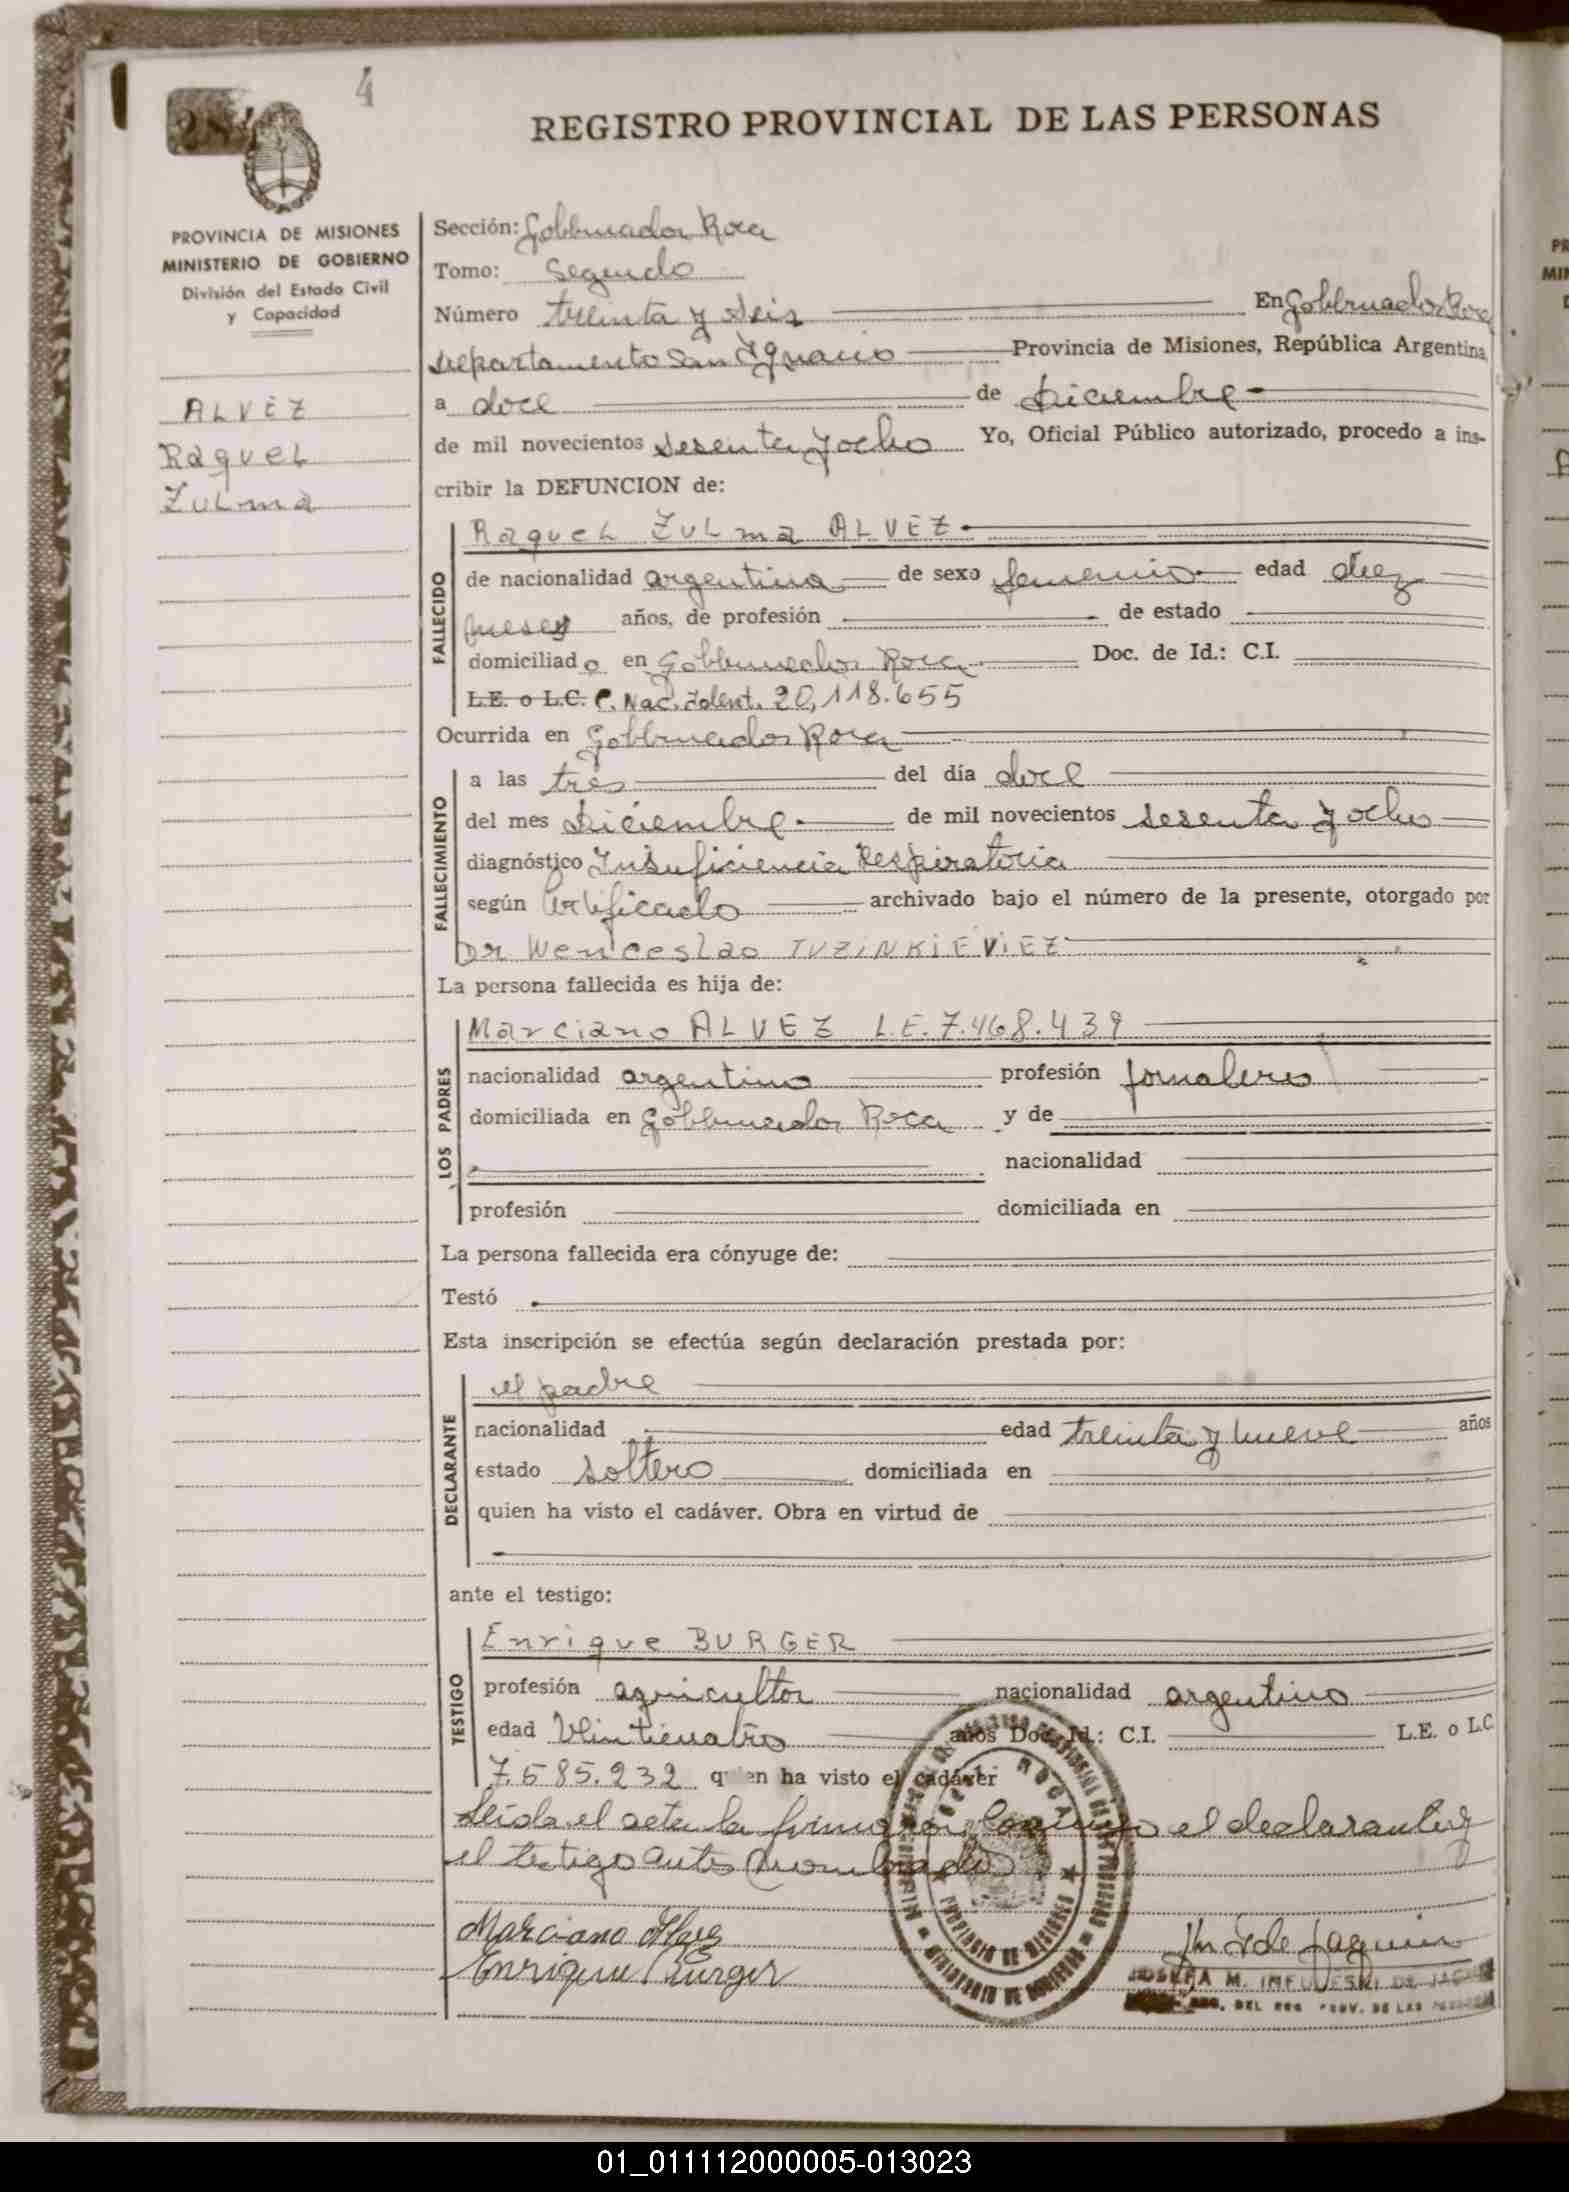 4
284
REGISTRO PROVINCIAL DE LAS PERSONAS
PROVINCIA DE MISIONES
MINISTERIO DE GOBIERNO
División del Estado Civil
y Capacidad
ALVEZ
Raquel
Zulma
Sección: Gobernador Roca
Tomo: Segundo
Número treinta y seis En Gobernador Roca
Departamento San Ignacio Provincia de Misiones, República Argentina,
a doce de Diciembre
de mil novecientos sesenta y ocho Yo, Oficial Público autorizado, procedo a ins-
cribir la DEFUNCION de:
FALLECIDO
Raquel Zulma ALVEZ
de nacionalidad argentina de sexo femenino edad diez
meses años, de profesión de estado
domiciliado en Gobernador Roca Doc. de Id.: C.I.
L.E. o L.C. C. Nac. Ident. 20,118.655
Ocurrida en Gobernador Roca
FALLECIMIENTO
a las tres del día doce
del mes Diciembre de mil novecientos sesenta y ocho
diagnóstico Insuficiencia Respiratoria
según Certificado archivado bajo el número de la presente, otorgado por
Dr Wenceslao TUZINKIEVIEZ
La persona fallecida es hija de:
LOS PADRES
Marciano ALVEZ L.E. 7.468.439
nacionalidad argentino profesión jornalero
domiciliada en Gobernador Roca y de
nacionalidad
profesión domiciliada en
La persona fallecida era cónyuge de:
Testó
Esta inscripción se efectúa según declaración prestada por:
DECLARANTE
el padre
nacionalidad edad treinta y nueve años
estado soltero domiciliada en
quien ha visto el cadáver. Obra en virtud de
ante el testigo:
TESTIGO
Enrique BURGER
profesión agricultor nacionalidad argentino
edad Veinticuatro años Doc. Id.: C.I. L.E. o L.C.
7.585.232 quien ha visto el cadáver
Leída el acta la firmaron conmigo el declarante y
el testigo antes nombrado
Marciano Alves
Enrique Burger
PROVINCIA DE MISIONES
MINISTERIO DE GOBIERNO
JOSEFA M. DE
DEL REG PROV. DE LAS
01_011112000005-013023